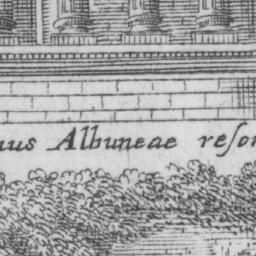 us Albuneae reſon